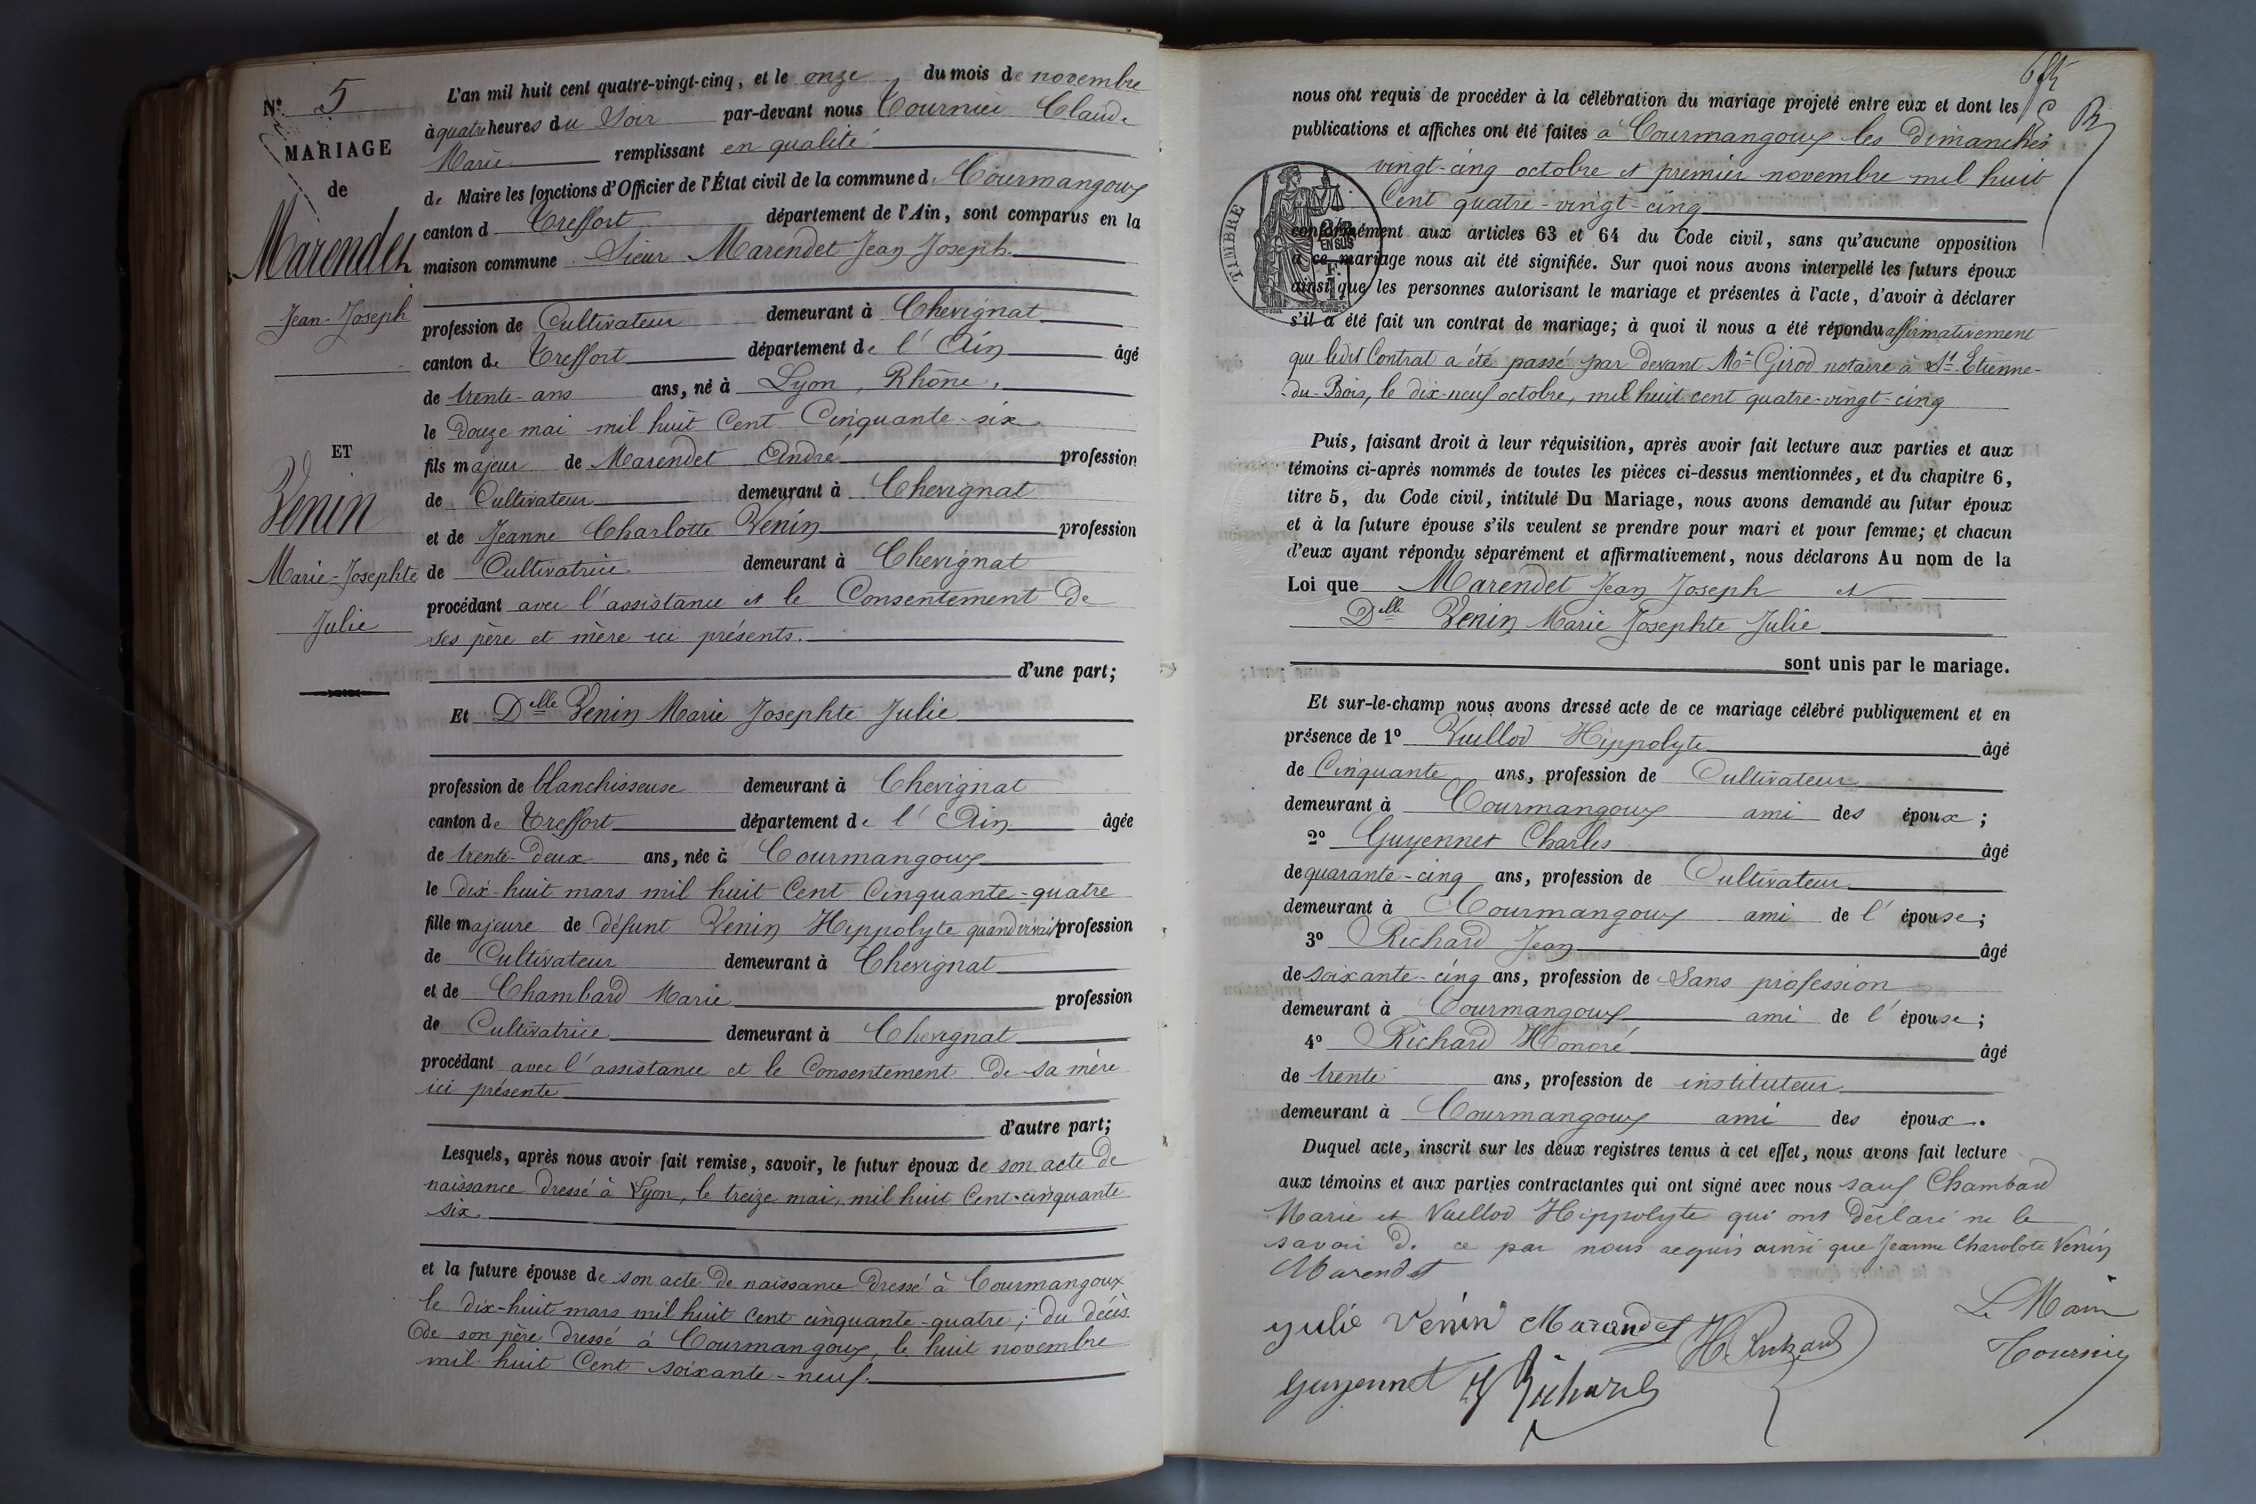 N° 5
MARIAGE
de
Marendet
Jean-Joseph
ET
Venin
Marie-Josephte
Julie
L'an mil huit cent quatre-vingt-cinq, et le onze du mois de novembre
à quatre heures du Soir par-devant nous Tournier Claude
Marie remplissant en qualité
de Maire les fonctions d'Officier de l'État civil de la commune d. Courmangoux
canton d Treffort département de l'Ain, sont comparus en la
maison commune Sieur Marendet Jean Joseph.
profession de Cultivateur demeurant à Chevignat
canton de Treffort département de l'Ain âgé
de trente-ans ans, né à Lyon, Rhône,
le douze mai mil huit Cent Cinquante-six
fils majeur de Marendet André profession
de Cultivateur demeurant à Chevignat
et de Jeanne Charlotte Venin profession
de Cultivatrice demeurant à Chevignat
procédant avec l'assistance et le Consentement de
ses père et mère ici présents.
d'une part;
Et Delle Venin Marie Josephte Julie
profession de blanchisseuse demeurant à Chevignat
canton de Treffort département de l'Ain âgée
de trente-deux ans, née à Courmangoux
le dix-huit mars mil huit Cent Cinquante-quatre
fille majeure de défunt Venin Hippolyte quand vivait profession
de Cultivateur demeurant à Chevignat
et de Chambard Marie profession
de Cultivatrice demeurant à Chevignat
procédant avec l'assistance et le Consentement de sa mère
ici présente
d'autre part;
Lesquels, après nous avoir fait remise, savoir, le futur époux de son acte de
naissance dressé à Lyon, le treize mai, mil huit Cent-cinquante
six
et la future épouse de son acte de naissance dressé à Courmangoux
le dix-huit mars mil huit Cent cinquante-quatre; du décès
de son père dressé à Courmangoux, le huit novembre
mil huit Cent soixante-neuf.
nous ont requis de procéder à la célébration du mariage projeté entre eux et dont les
publications et affiches ont été faites à Courmangoux les dimanches
vingt-cinq octobre et premier novembre mil huit
Cent quatre-vingt-cinq
TIMBRE
2/10
EN SUS
F.
1
conformément aux articles 63 et 64 du Code civil, sans qu'aucune opposition
à ce mariage nous ait été signifiée. Sur quoi nous avons interpellé les futurs époux
ainsi que les personnes autorisant le mariage et présentes à l'acte, d'avoir à déclarer
s'il a été fait un contrat de mariage; à quoi il nous a été répondu affirmativement
que ledit Contrat a été passé par devant Me Girod notaire à St Etienne-
-du-Bois, le dix-neuf octobre, mil huit cent quatre-vingt-cinq
Puis, faisant droit à leur réquisition, après avoir fait lecture aux parties et aux
témoins ci-après nommés de toutes les pièces ci-dessus mentionnées, et du chapitre 6,
titre 5, du Code civil, intitulé Du Mariage, nous avons demandé au futur époux
et à la future épouse s'ils veulent se prendre pour mari et pour femme; et chacun
d'eux ayant répondu séparément et affirmativement, nous déclarons Au nom de la
Loi que Marendet Jean Joseph et
Delle Venin Marie Josephte Julie
sont unis par le mariage.
Et sur-le-champ nous avons dressé acte de ce mariage célébré publiquement et en
présence de 1° Vuillod Hippolyte âgé
de Cinquante ans, profession de Cultivateur
demeurant à Courmangoux ami des époux;
2° Guyennet Charles âgé
de quarante-cinq ans, profession de Cultivateur
demeurant à Courmangoux ami de l'épouse;
3° Richard Jean âgé
de soixante-cinq ans, profession de Sans profession
demeurant à Courmangoux ami de l'épouse;
4° Richard Honoré âgé
de trente ans, profession de instituteur
demeurant à Courmangoux ami des époux.
Duquel acte, inscrit sur les deux registres tenus à cet effet, nous avons fait lecture
aux témoins et aux parties contractantes qui ont signé avec nous sauf Chambard
Marie et Vuillod Hippolyte qui ont déclaré ne le
savoir de ce par nous requis ainsi que Jeanne Charolote Venin
Marendet
Le Maire
julie Venin Marandet H Richard
Tournier
Guyennet Richard